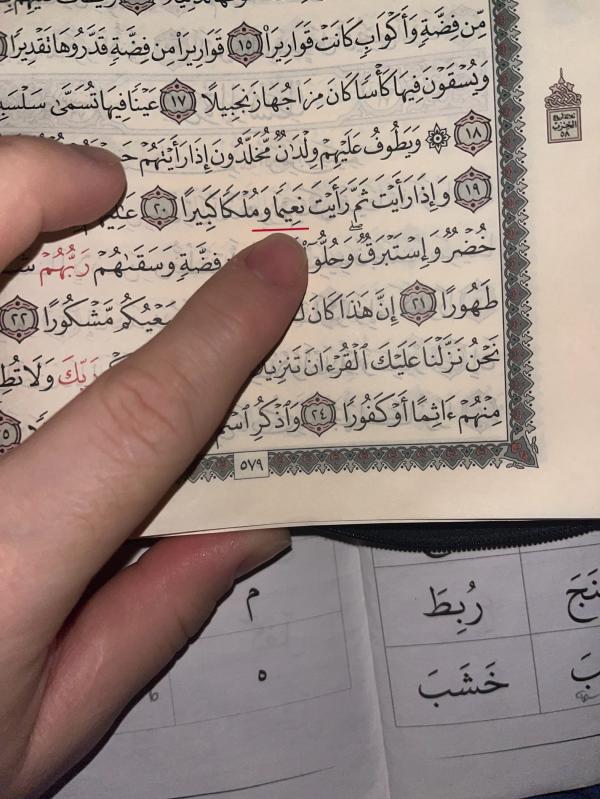 مِّن فِضَّةٍ وَأَكْوَابٍ كَانَتْ قَوَارِيرَا۠ ١٥ قَوَارِيرَا۟ مِن فِضَّةٍ قَدَّرُوهَا تَقْدِيرًا
وَيُسْقَوْنَ فِيهَا كَأْسًا كَانَ مِزَاجُهَا زَنجَبِيلًا ١٧ عَيْنًا فِيهَا تُسَمَّىٰ
١٨ ۞ وَيَطُوفُ عَلَيْهِمْ وِلْدَٰنٌ مُّخَلَّدُونَ إِذَا رَأَيْتَهُمْ
١٩ وَإِذَا رَأَيْتَ ثَمَّ رَأَيْتَ نَعِيمًا وَمُلْكًا كَبِيرًا ٢٠
خُضْرٌ وَإِسْتَبْرَقٌ وَحُلُّو فِضَّةٍ وَسَقَىٰهُمْ رَبُّهُمْ
طَهُورًا ٢١ إِنَّ هَٰذَا كَانَ سَعْيُكُم مَّشْكُورًا ٢٢
نَحْنُ نَزَّلْنَا عَلَيْكَ ٱلْقُرْءَانَ تَنزِيلًا رَبِّكَ وَلَا
مِنْهُمْ ءَاثِمًا أَوْ كَفُورًا ٢٤ وَٱذْكُرِ ٱسْمَ
٥٧٩
الحزب
٥٨
رُبِطَ م
خَشَبَ ه